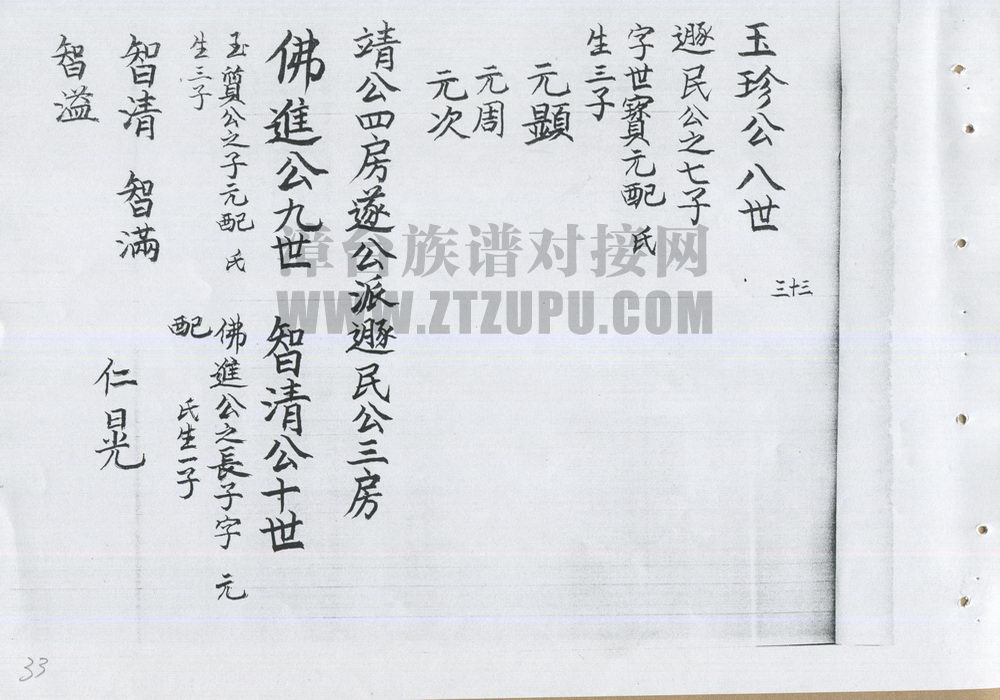 玉珍公八世
遯民公之七子
字世寳元配 氏
生三子
元顯
元周
元次
靖公四房遂公派遯民公三房
佛進公九世 智清公十世
玉質公之子元配 氏
生三子
佛進公之長子字 元
配 氏生一子
智清 智滿
智溢
仁晃
三十三
漳台族谱对接网
WWW.ZTZUPU.COM
33